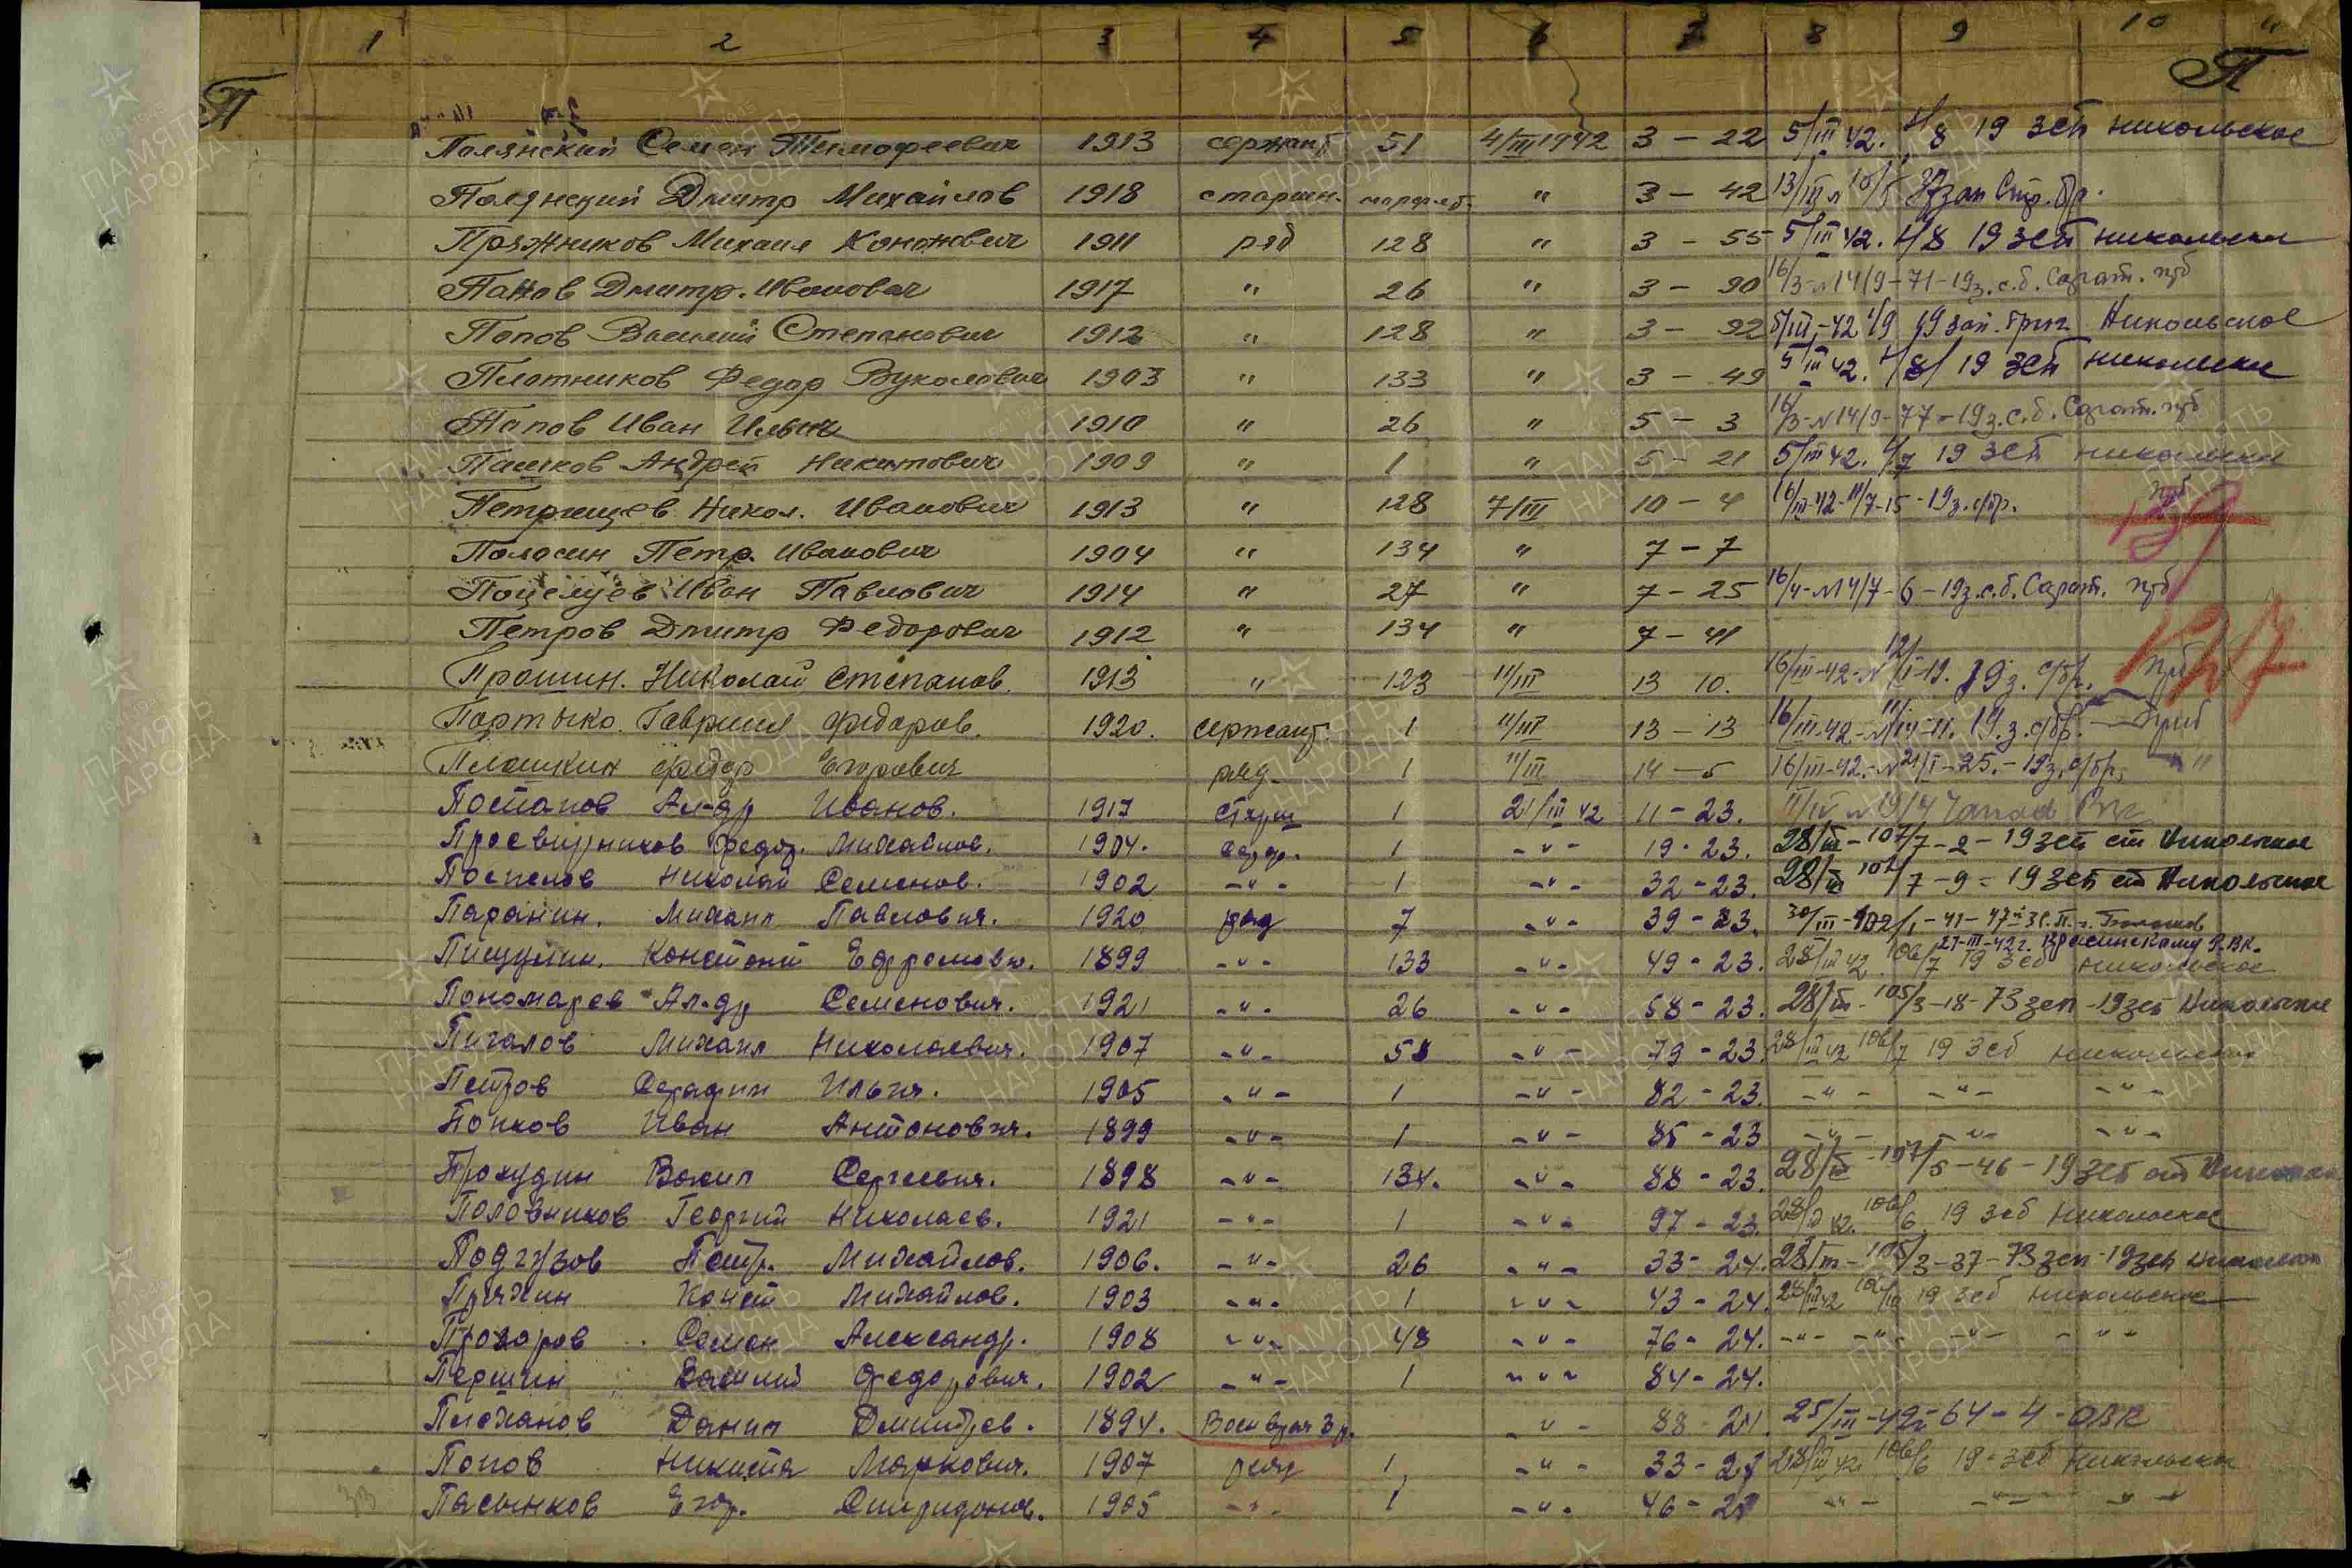 1 2 3 4 5 6 7 8 9 10 "
П П
Полянский Семен Тимофеевич 1913 сержант 51 4/III 1942 3 - 22 5/III 42. 4/8 19 зсб никольское
Полянский Дмитр Михайлов 1918 старшин. " 3 - 42 зап Стр. бр.
Пряжников Михаил Кононович 1911 ряд 128 " 3 - 55 5/III 42. 4/8 19 зсб никольское
Панов Дмитр. Иванович 1917 " 26 " 3 - 90 16/3-N14/9-71-19з.с.б. Сарат. губ
Попов Василий Степанович 1912 " 128 " 3 - 92 5/III-42 19 зап. бриг Никольское
Плотников Федор Вуколович 1903 " 133 " 3 - 49 5/III 42. 4/8/ 19 зсб никольское
Попов Иван Ильич 1910 " 26 " 5 - 3 16/3-N14/9-77-19з.с.б. Сарат. губ
Пашков Андрей Никитович 1909 " 1 " 5 - 21 5/III 42. 4/7 19 зсб никольское
Петрищев Никол. Иванович 1913 " 128 7/III 10 - 4 16/III-42-11/7-15-19з.с/бр.
Полосин Петр. Иванович 1904 " 134 " 7 - 7
Поцелуев Иван Павлович 1914 " 27 " 7 - 25 16/4-N14/7-6-19з.с.б. Сарат. губ
Петров Дмитр Федорович 1912 " 134 " 7 - 41 127
Прошин. Николай Степанов. 1913 " 123 11/III 13 10. 16/III-42-N12/I-19. 19з. с/бр.
Портыко. Гавриил Федоров. 1920. сержант 1 11/III 13 - 13 16/III-42-N11/14-11. 19.з.с/бр.
Плошкин Федор Егорович ряд- 1 11/III 14 - 5 16/III-42.-N21/I-25.-19з.с/бр. "
Потапов Ал-др Иванов. 1917 старш 1 21/III 42 11 - 23.
Просвирников Федор. Михайлов. 1904. 1 -"- 19 - 23. 28/III-107/7-2-19 зсб ст Никольское
Поспелов Николай Семенов. 1902 -"- 1 -"- 32 - 23. 28/III 107/7-9-19 зсб ст Никольское
Паранин. Михаил Павлович. 1920 ряд 7 -"- 39 - 23. 30/III-
Пищулин. Констант Ефремович. 1899 -"- 133 -"- 49 - 23. 27-III-42г. Р.ВК. 28/III 42 106/7 19 зсб никольское
Пономарев Ал-др Семенович. 1921 -"- 26 -"- 58 - 23. 28/III-105/3-18-73 зсп-19 зсб Никольское
Пигалов Михаил Николаевич. 1907 -"- 58 -"- 79 - 23. 28/III 42 106/7 19 зсб никольское
Петров Серафим Ильич. 1905 -"- 1 -"- 82 - 23. -"- -"- -"-
Попков Иван Антонович. 1899 -"- 1 -"- 85 - 23 -"- -"- -"-
Прохудин Васил Сергеевич. 1898 -"- 134. -"- 88 - 23. 28/III-107/5-46-19 зсб ст Никольское
Половников Георгий Николаев. 1921 -"- 1 -"- 97 - 23. 28/III 42. 106/6 19 зсб Никольское
Подгузов Петр. Михайлов. 1906. -"- 26 -"- 33 - 24. 28/III-105/3-37-73 зсп-19 зсб Никольское
Пряхин Конст Михайлов. 1903 -"- 1 -"- 43 - 24. 28/III 42 19 зсб никольское
Прохоров Семен Александр. 1908 -"- 48 -"- 76 - 24. -"- -"- -"- -"-
Першин Василий Федорович. 1902 -"- 1 -"- 84 - 24.
Плеханов Данил Дмитриев. 1894. Воен врач 3 р. -"- 88 - 24 25/III-42г-64-4-ОВК
Попов Никита Маркович. 1907 ряд 1 -"- 33 - 27 28/III 42 106/6 19-зсб Никольское
Пасынков Егор. Спиридонов. 1905 -"- 1 -"- 46 - 27 -"- -"- -"-
33
ПАМЯТЬ НАРОДА